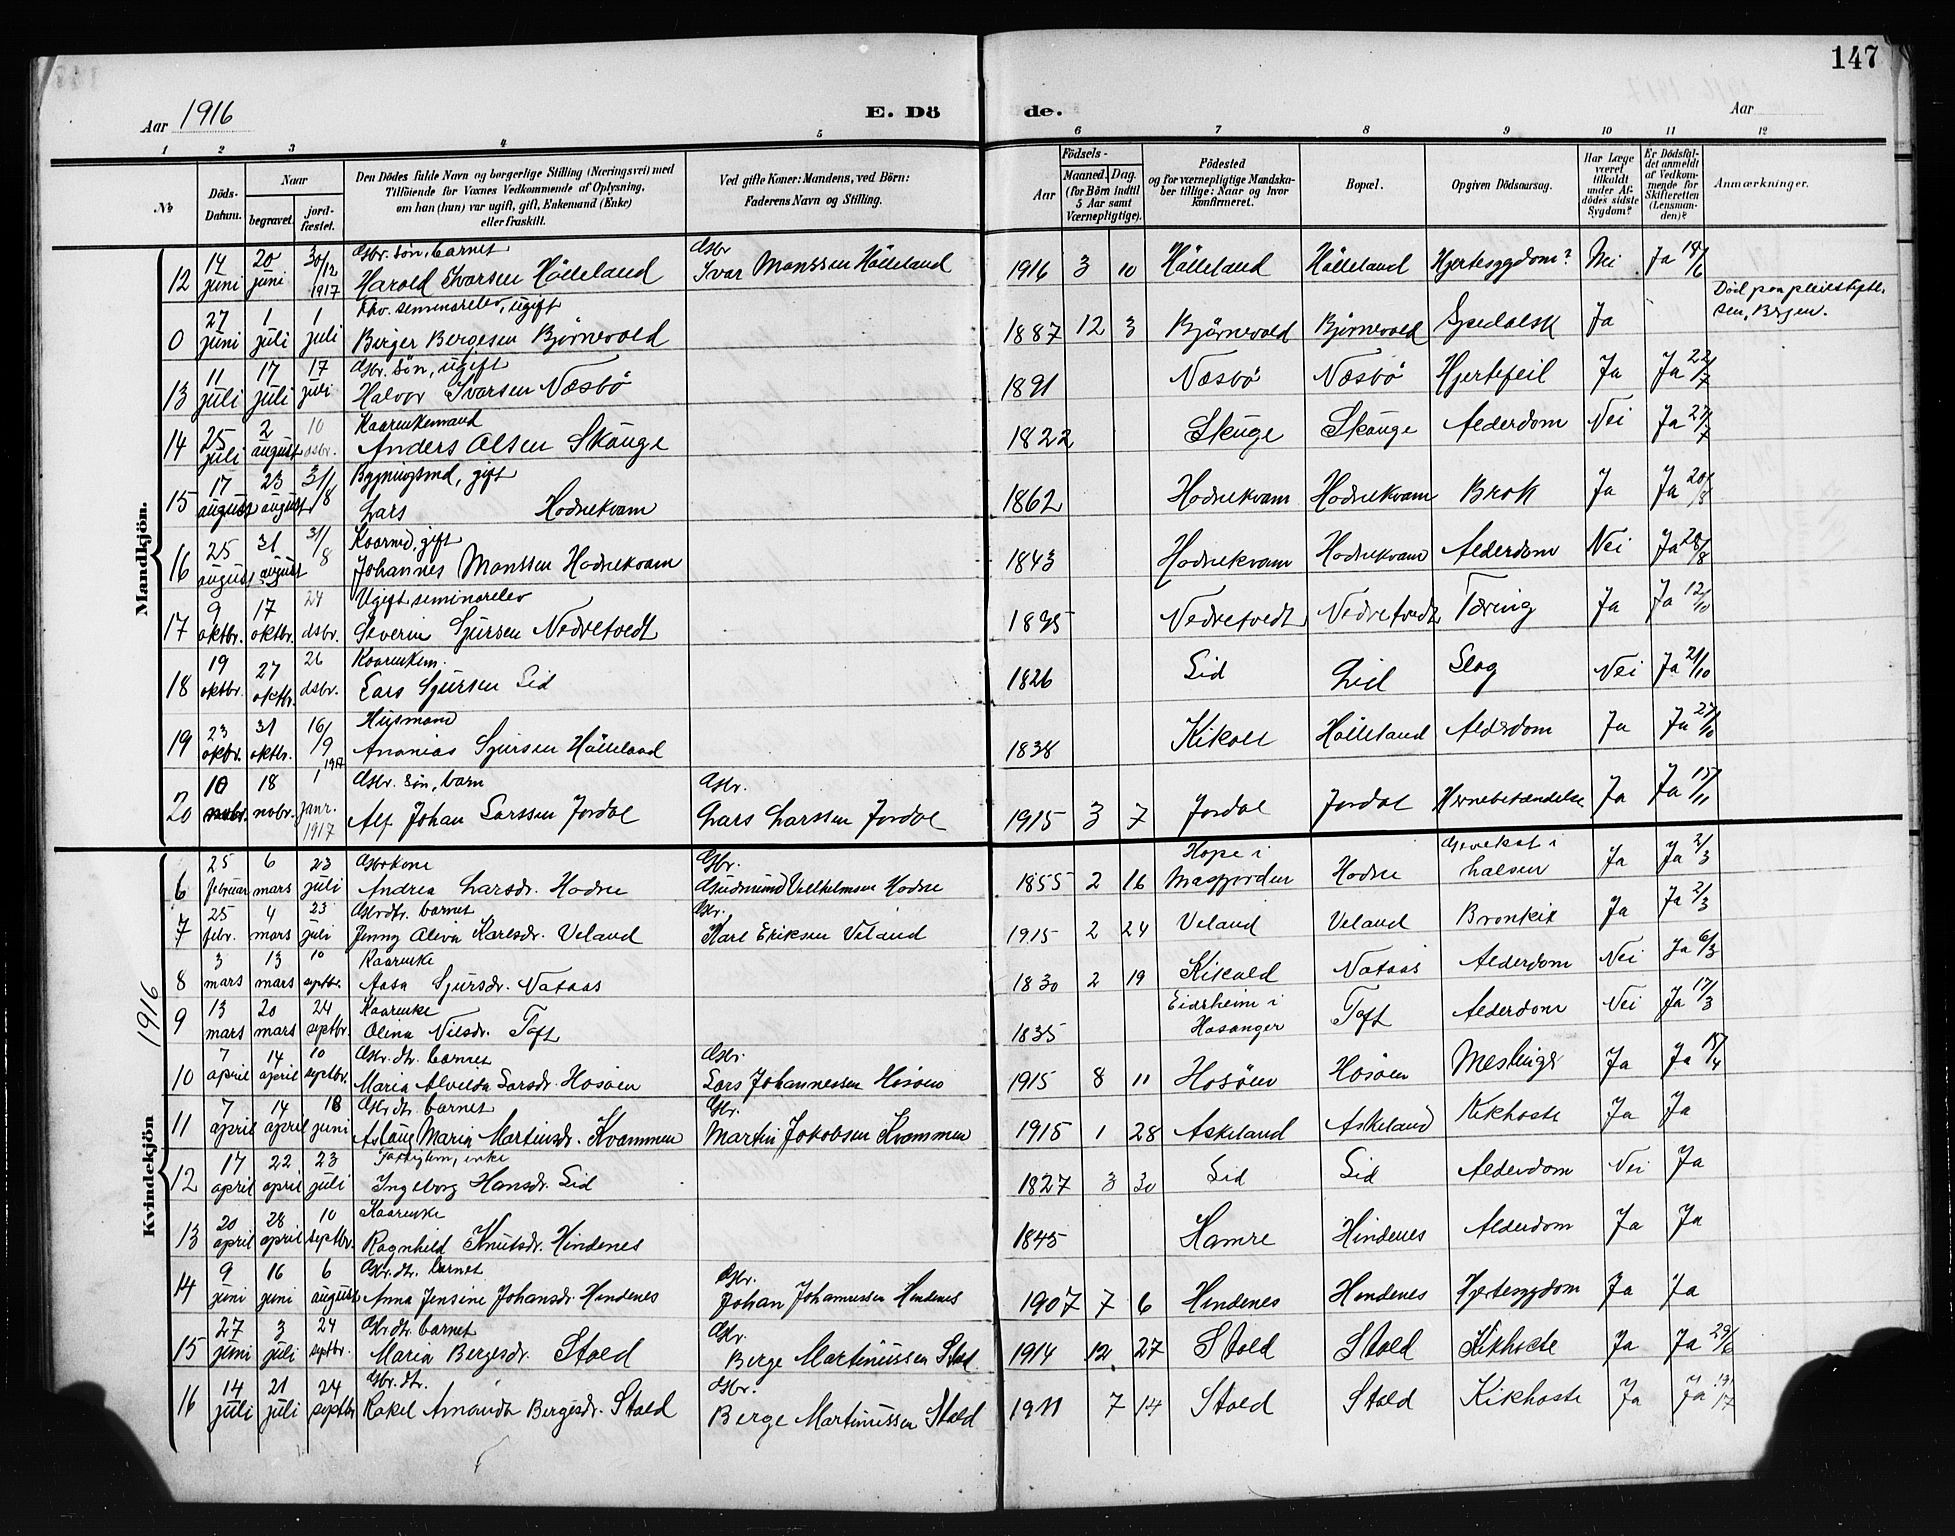 147
Aar 1916 E. Dö de. Aar
1 2 3 4 5 6 7 8 9 10 11 12
№ Döds-Datum. Naar begravet. jord-fæstet. Den Dödes fulde Navn og borgerlige Stilling (Næringsvei) med Tilföiende for Voxnes Vedkommende af Oplysning, om han (hun) var ugift, gift, Enkemand (Enke) eller fraskilt. Ved gifte Koner: Mandens, ved Börn: Faderens Navn og Stilling. Födsels- Aar Maaned. Dag. (for Börn indtil 5 Aar samt Værnepligtige). Födested og for værnepligtige Mandskaber tillige: Naar og hvor konfirmeret. Bopæl. Opgiven Dödsaarsag. Har Læge været tilkaldt under Afdödes sidste Sygdom? Er Dödsfaldet anmeldt af Vedkommende for Skifteretten (Lensmanden)? Anmærkninger.
Mandkjön.
12 14 juni 20 juni 30/12 1917 Gbr. søn, barnet Harold Ivarsen Hölleland Gbr Ivar Monssen Hölleland 1916 3 10 Hölleland Hölleland Hjertesygdom? Nei Ja 18/6
0 27 juni 1 juli 1 juli Fhv. seminarelev, ugift Birger Bergesen Björnevold 1887 12 3 Björnevold Björnevold Spedalsk Ja Död paa pleiestiftelsen, Bergen.
13 11 juli 17 juli 17 juli Gbr. søn, ugift Halvor Ivarsen Næsbö 1891 Næsbö Næsbö Hjertefeil Ja Ja 22/7
14 25 juli 2 august 10 dsbr. Kaarenkemand Anders Olsen Skauge 1822 Skuge Skauge Alderdom Nei Ja 27/7
15 17 august 23 august 31/8 Bygningsmd, gift Lars Hodnekvam 1862 Hodnekvam Hodnekvam Brok Ja Ja 20/8
16 25 august 31 august 31/8 Kaarmd, gift Johannes Monssen Hodnekvam 1843 Hodnekvam Hodnekvam Alderdom Nei Ja 28/8
17 9 oktbr. 17 oktbr. 24 dsbr. Ugift seminarelev Severin Sjursen Nedretvedt 1895 Nedretvedt Nedretvedt Tæring Ja Ja 12/10
18 19 oktbr. 27 oktbr. 26 dsbr. Kaarenkem. Lars Sjursen Lid 1826 Lid Lid Slag Nei Ja 21/10
19 23 okbr. 31 oktbr. 16/9 1917 Husmand Ananias Sjursen Hölleland 1838 Kikall Hölleland Alderdom Ja Ja 27/10
20 10 novbr. 18 novbr. 1 janr. 1917 Gbr. søn, barn Alf Johan Larssen Jordal Gbr. Lars Larssen Jordal 1915 3 7 Jordal Jordal Hjernebetændelse Ja Ja 15/11
1916
Kvindekjön
6 25 februar 6 mars 23 juli Gbrkone Andrea Larsdr. Hodne Gbr. Gudmund Vilhelmsen Hodne 1855 2 16 Hope i Masfjorden Hodne Gevekst i halsen Ja Ja 2/3
7 25 febr. 4 mars 23 juli Gbrdtr. barnet Jenny Oliva Karlsdr. Veland Gbr. Karl Eriksen Veland 1915 2 24 Veland Veland Bronkit Ja Ja 2/3
8 3 mars 13 mars 10 septbr. Kaarenke Aasa Sjursdr. Nataas 1830 2 19 Kikald Nataas Alderdom Nei Ja 6/3
9 13 mars 20 mars 24 septbr. Kaarenke Olina Nilsdr. Toft 1835 Eidsheim i Hosanger Toft Alderdom Nei Ja 17/3
10 7 april 14 april 10 septbr. Gbr. dtr. barnet Maria Alvilda Larsdr. Hosöen Gbr. Lars Johannessen Hosöen 1915 8 11 Hosöen Hosöen Meslinger Ja Ja 15/4
11 7 april 14 april 18 juni Gbr. dtr. barnet Aslaug Maria Martinsdr. Kvammen Gbr. Martin Jakobsen Kvammen 1915 1 28 Askeland Askeland Kikhoste Ja Ja
12 17 april 22 april 23 juli Fattiglem, enke Ingeborg Hansdr. Lid 1827 3 30 Lid Lid Alderdom Nei Ja
13 20 april 28 april 10 septbr. Kaarenke Ragnhild Knutsdr. Hindenes 1845 Hamre Hindenes Alderdom Ja Ja
14 9 juni 16 juni 6 august Gbr. dtr. barnet Anna Jensine Johansdr. Hindenes Gbr. Johan Johannessen Hindenes 1907 7 6 Hindenes Hindenes Hjertesygdom Ja Ja
15 27 juni 3 juli 24 septbr. Gbr. dtr. barnet Maria Bergesdr. Stold Gbr. Berge Martinussen Stold 1914 12 27 Stold Stold Kikhoste Ja Ja 29/6
16 14 juli 21 juli 24 septbr Gbr. dtr. Rakel Amanda Bergesdr. Stold Gbr. Berge Martinussen Stold 1911 7 14 Stold Stold Kikhoste Ja Ja